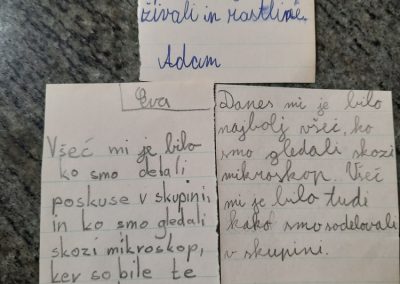 živali in rastline.
Adam
Eva
Všeč mi je bilo
ko smo delali
poskuse v skupini
in ko smo gledali
skozi mikroskop,
ker so bile te
Danes mi je bilo
najbolj všeč, ko
smo gledali skozi
mikroskop. Všeč
mi je bilo tudi
kako smo sodelovali
v skupini.